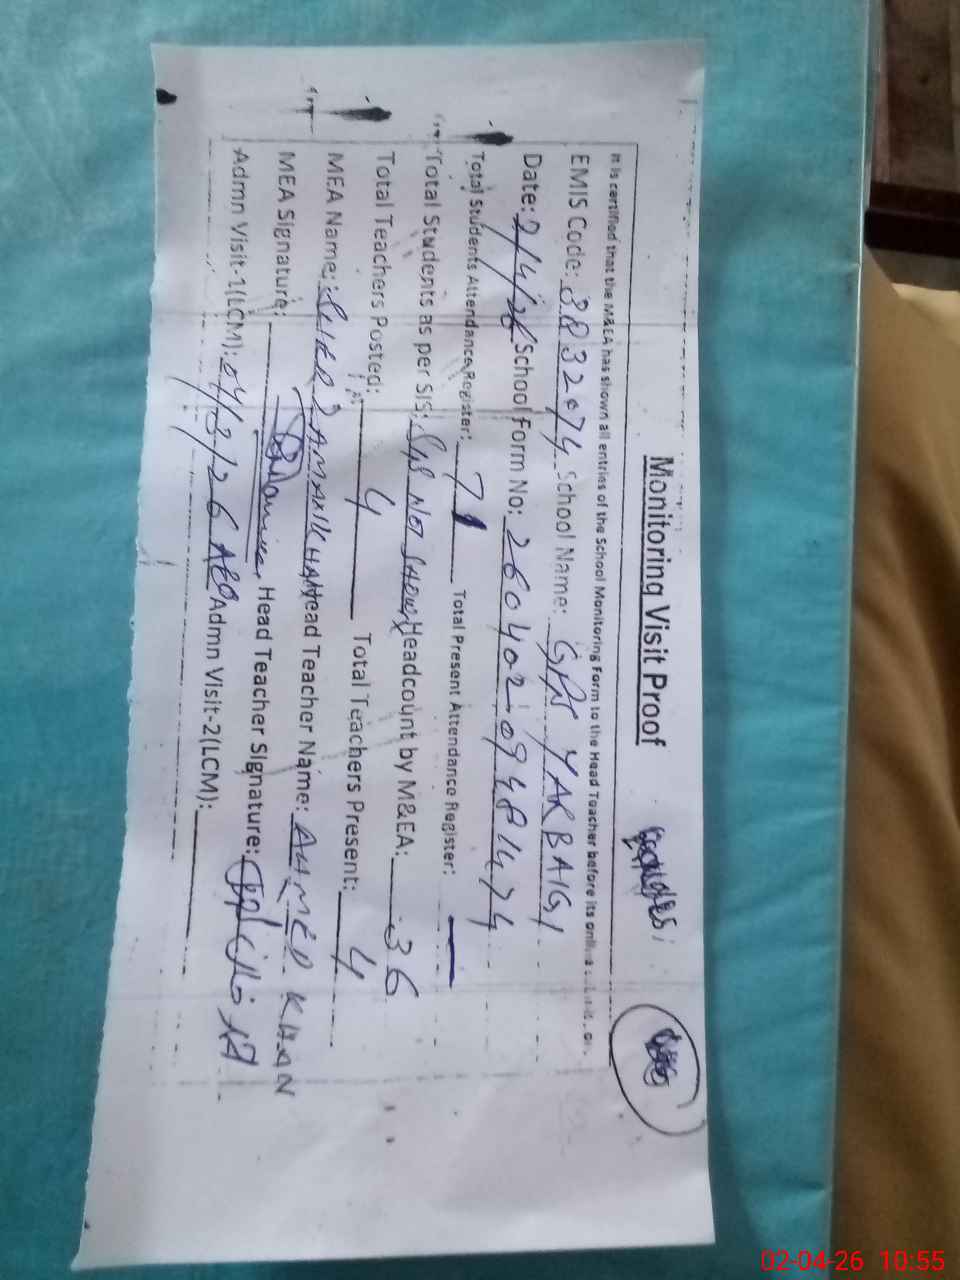 Monitoring Visit Proof
It is certified that the M&EA has shown all entries of the School Monitoring Form to the Head Teacher before its online
EMIS Code: 3832074 School Name: GPS YARBAIG
Date: 2/4/26 School Form No: 260402-09481474
Total Students Attendance Register: 71 Total Present Attendance Register: —
Total Students as per SIS: SIS NOT SHOW Headcount by M&EA: 36
Total Teachers Posted: 4 Total Teachers Present: 4
MEA Name: AMAN KHAN Head Teacher Name: AHMED KHAN
MEA Signature: Head Teacher Signature:
Admn Visit-1(LCM): 04/3/26 AEO Admn Visit-2(LCM):
02-04-26 10:55